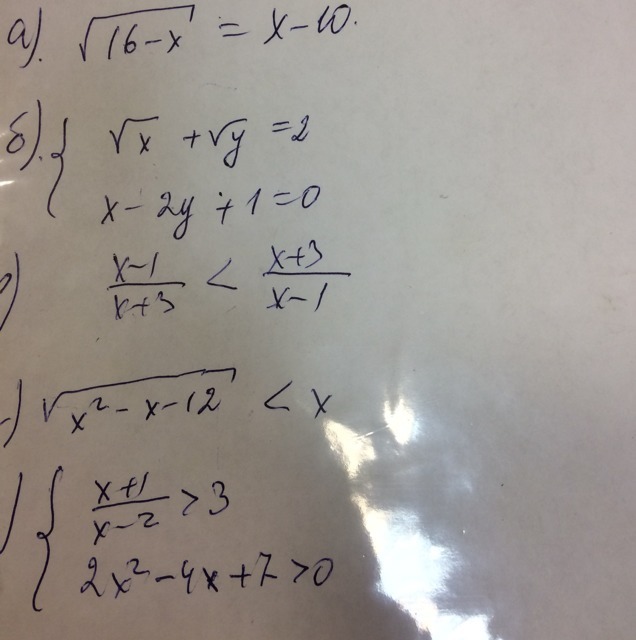 а). √(16-x) = x-10.
б). { √x + √y = 2
x - 2y + 1 = 0
) (x-1)/(x+3) < (x+3)/(x-1)
) √(x² - x - 12) < x
) { (x+1)/(x-2) > 3
2x² - 4x + 7 > 0